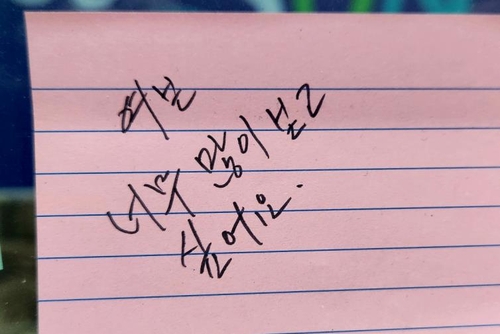 여보
너무 많이 보고
싶어요.